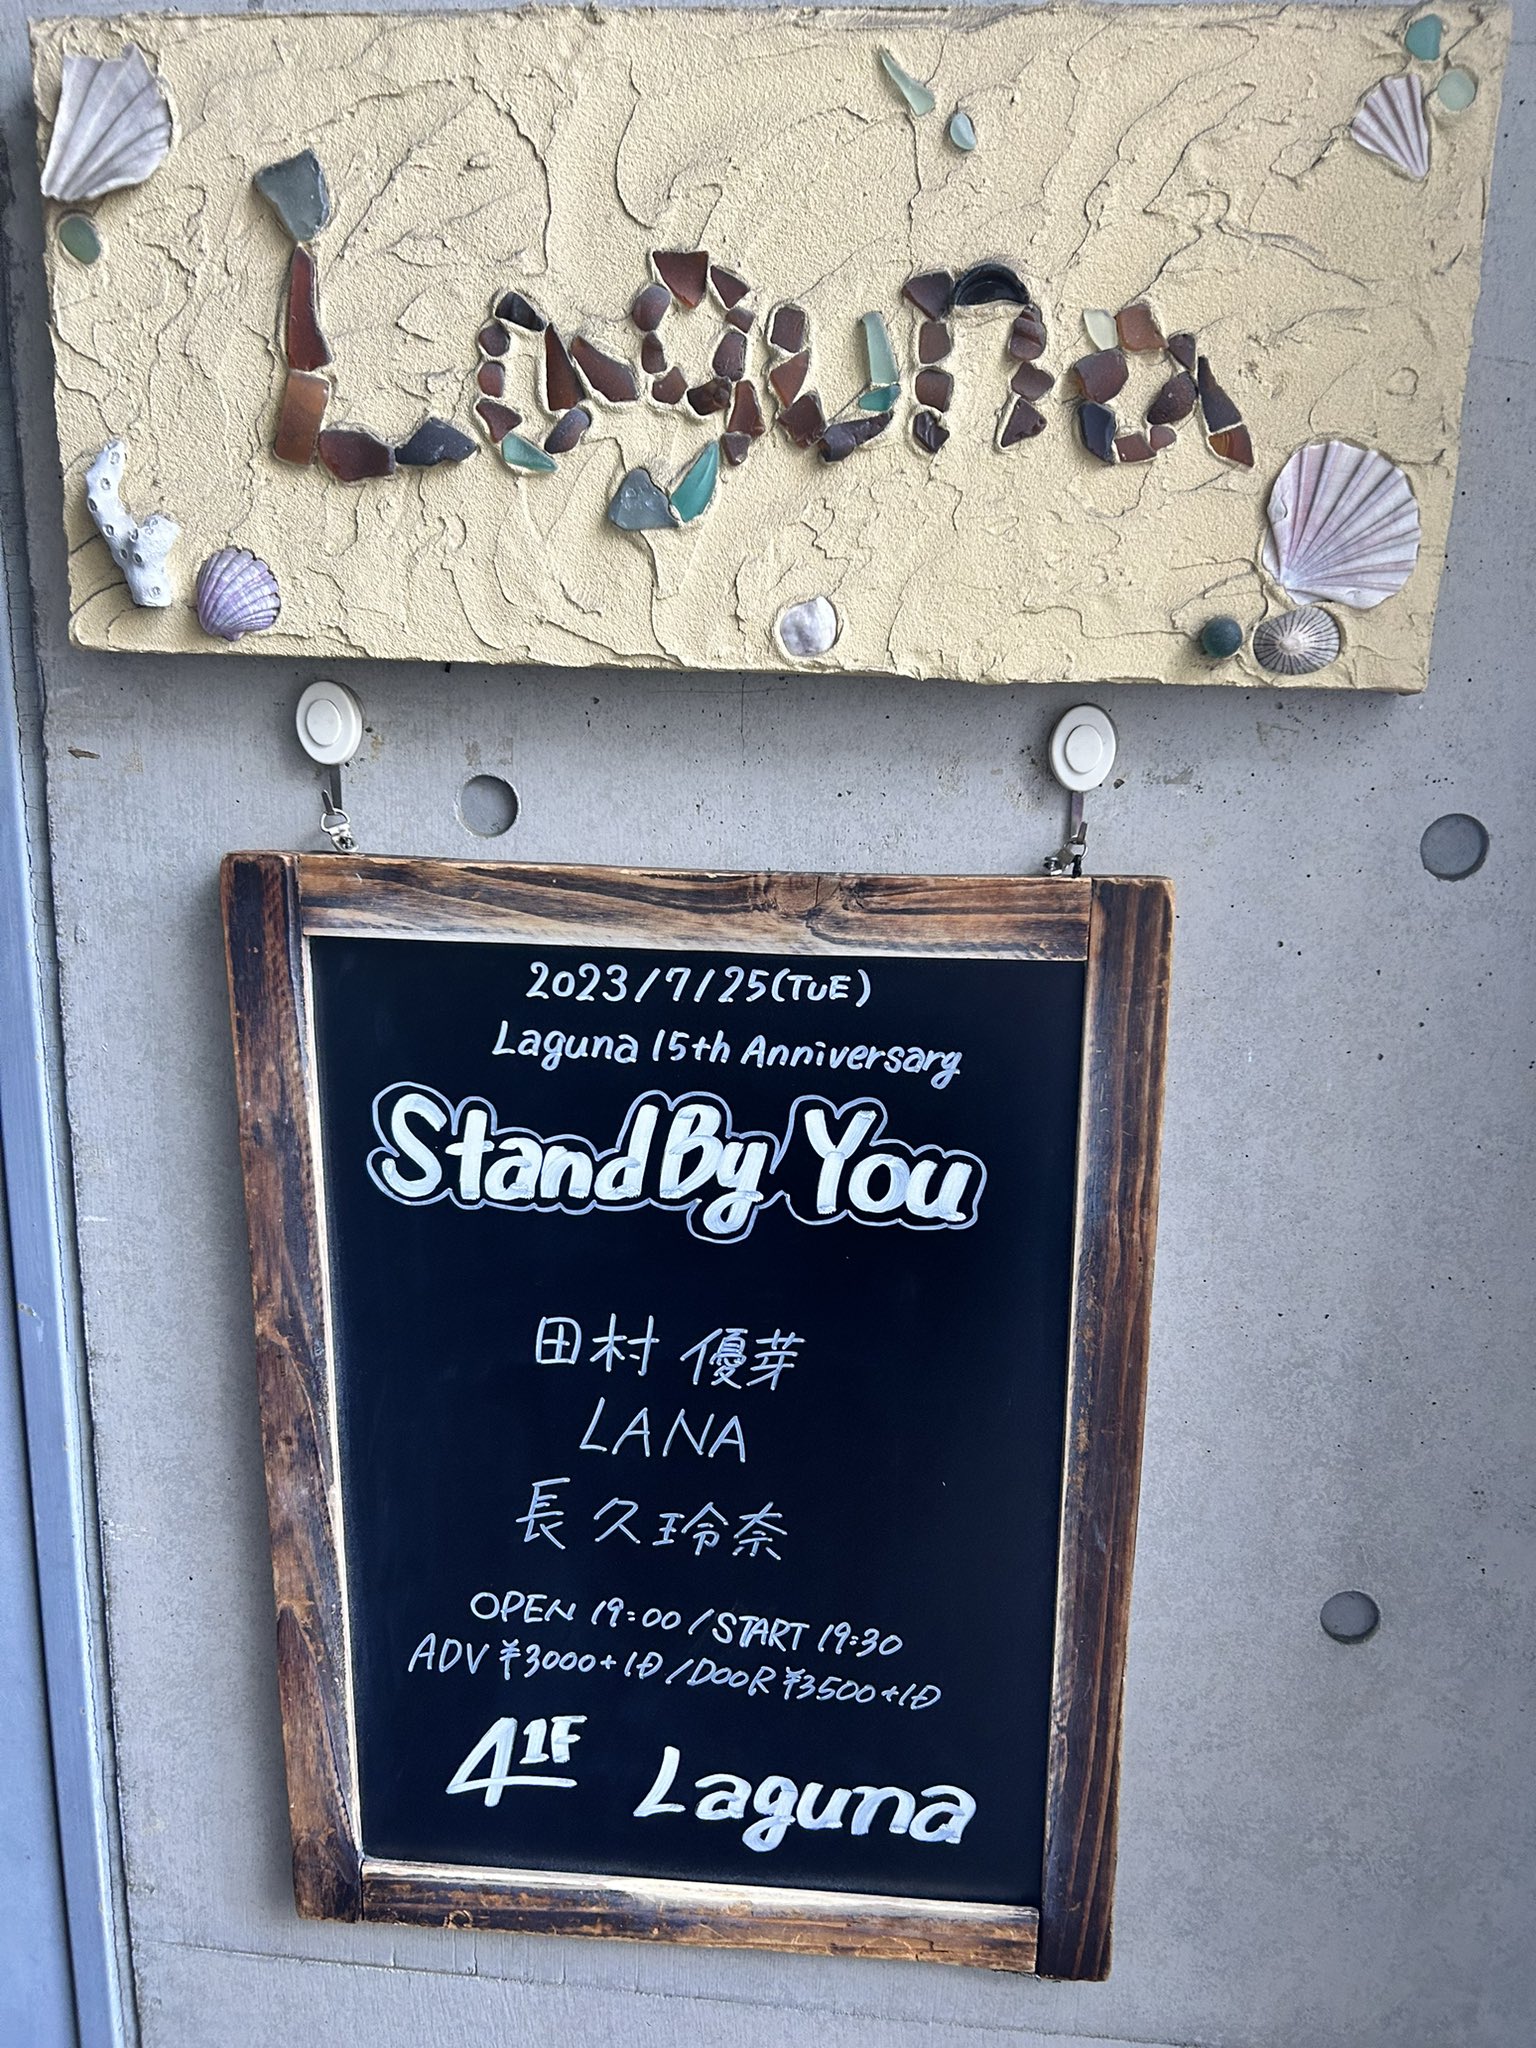 Laguna
2023/7/25(TUE)
Laguna 15th Anniversary
Stand By You
田村 優芽
LANA
長久玲奈
OPEN 19:00/START 19:30
ADV ¥3000+1D/DOOR ¥3500+1D
1F Laguna